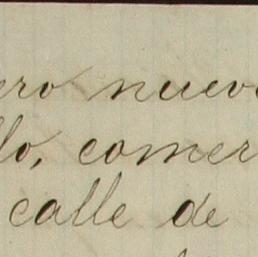 ero nuevo
llo, comer
calle de